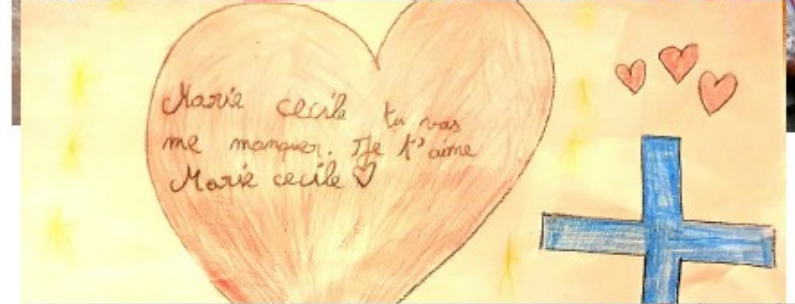 Marie cecile tu vas
me manquer. Je t'aime
Marie cecile ♡